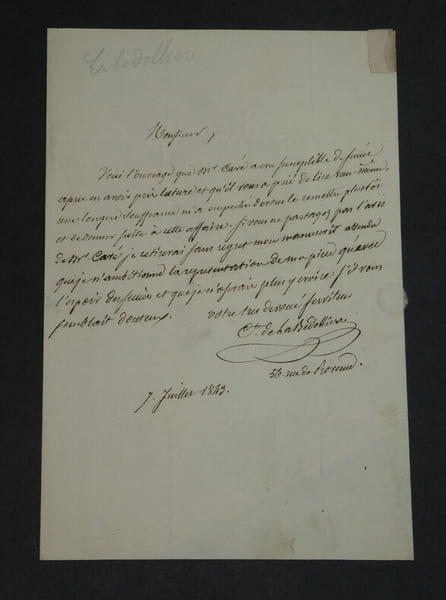 Labedolliere
Monsieur,
Voici l'ouvrage que Mr. Caré a cru susceptible de succès
apres en avoir pris lecture et qu'il vous a prié de lire vous-même.
une longue souffrance m'a empeché de vous le remettre plustôt
et de donner suite à cette affaire. Si vous ne partagez pas l'avis
de Mr Caré je retirerai sans regret mon manuscrit attendu
que je n'ambitionne la représentation de ma piece qu'avec
l'espoir du succès et que je n'oserais plus y croire s'il vous
semblait douteux.
votre tres devoué serviteur
E. de la Bédollierre
56 rue de
7. Juillet 1843.